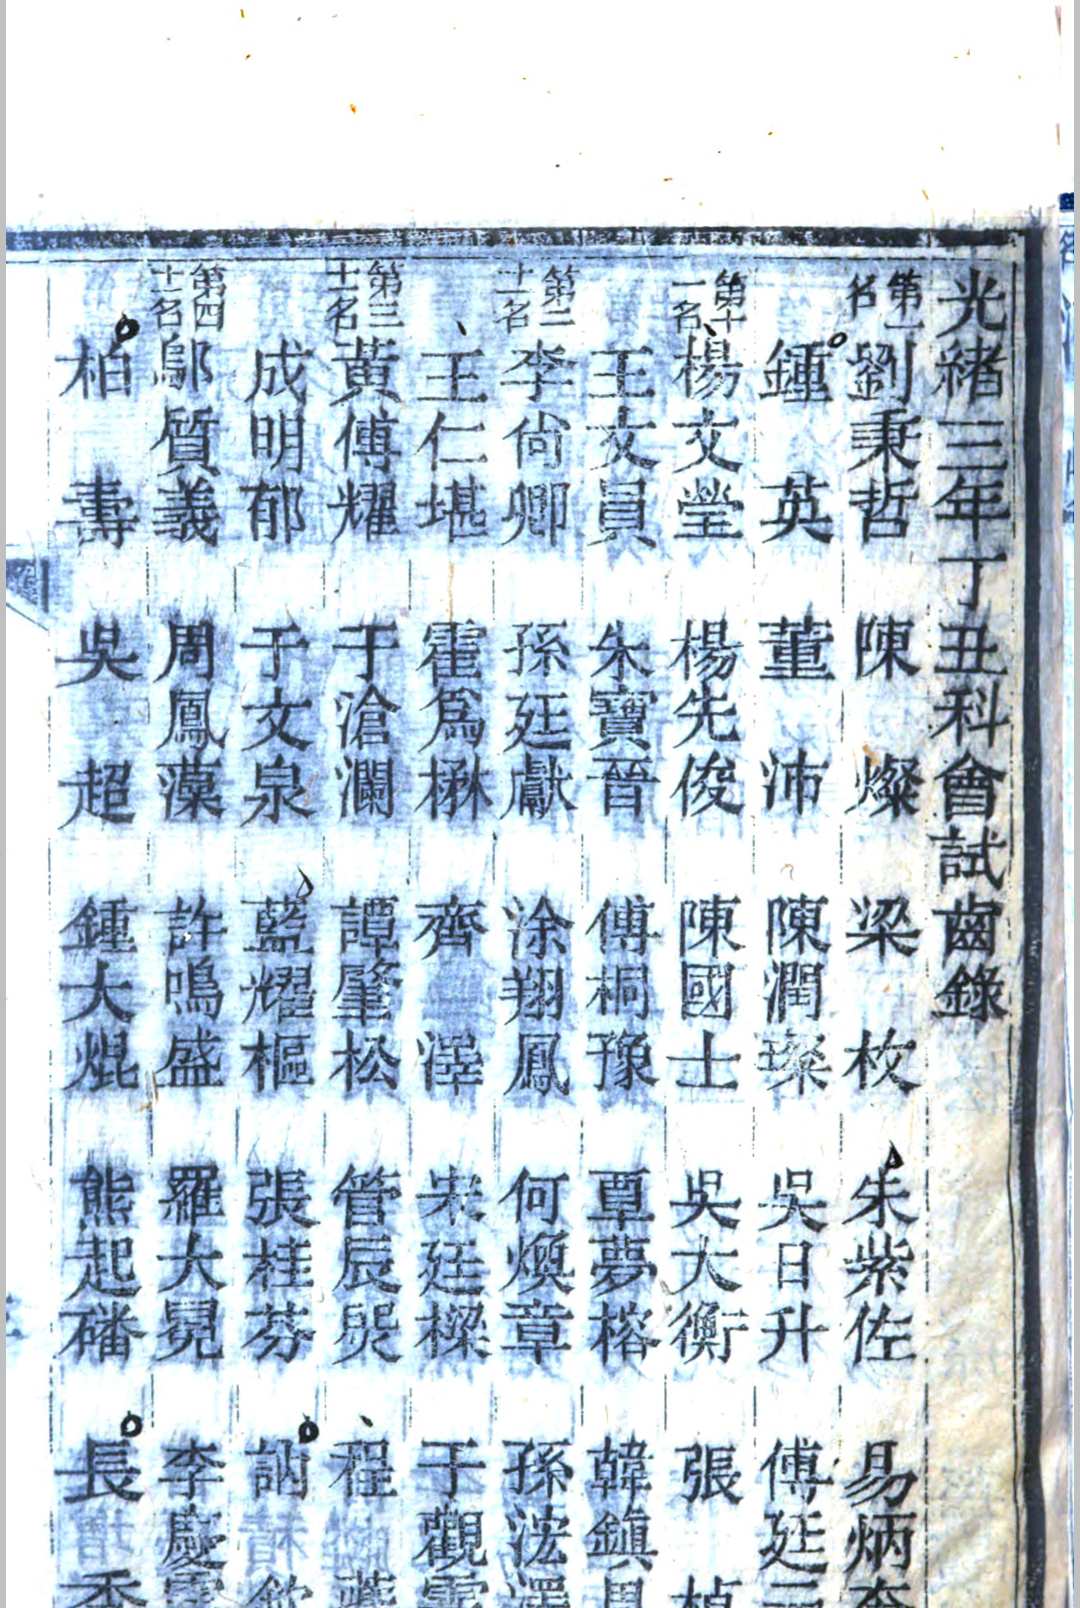 光緒三年丁丑科會試齒錄
第一名 劉秉哲 陳燦 梁枚 朱紫佐 易炳
鍾英 董沛 陳潤璨 吳日升 傅廷
第十一名 楊文瑩 楊先俊 陳國士 吳大衡 張楨
王文員 朱寶晉 傅桐豫 覃夢榕 韓鎮
第二十一名 李尙卿 孫廷獻 涂翔鳳 何煥章 孫浤澤
王仁堪 霍爲楙 齊澤 宋廷樑 于觀霖
第三十一名 黃傅耀 于滄瀾 譚肇松 管辰㷗 程
成明郁 于文泉 藍耀樞 張桂芬 訥欽
第四十一名 鄔質義 周鳳藻 許鳴盛 羅大冕 李慶
柏壽 吳超 鍾大焜 熊起磻 長